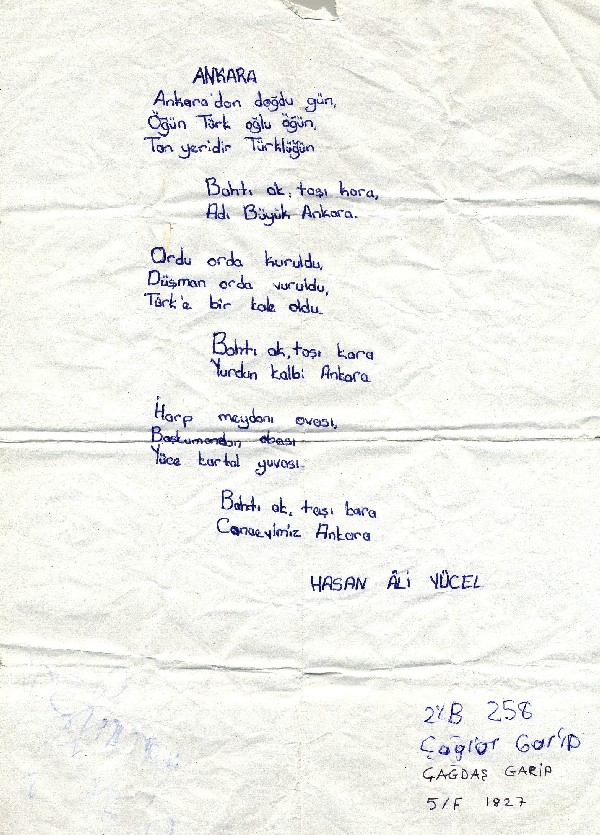 ANKARA
Ankara'dan doğdu gün,
Öğün Türk oğlu öğün,
Tan yeridir Türklüğün
Bahtı ak, taşı kara,
Adı Büyük Ankara.
Ordu orda kuruldu,
Düşman orda vuruldu,
Türk'e bir kale oldu.
Bahtı ak, taşı kara
Yurdun kalbi Ankara
Harp meydanı ovası,
Başkumandan obası
Yüce kartal yuvası.
Bahtı ak, taşı kara
Canevimiz Ankara
HASAN ÂLİ YÜCEL
2/B 258
Çağlar Garip
ÇAĞDAŞ GARİP
5/F 1827